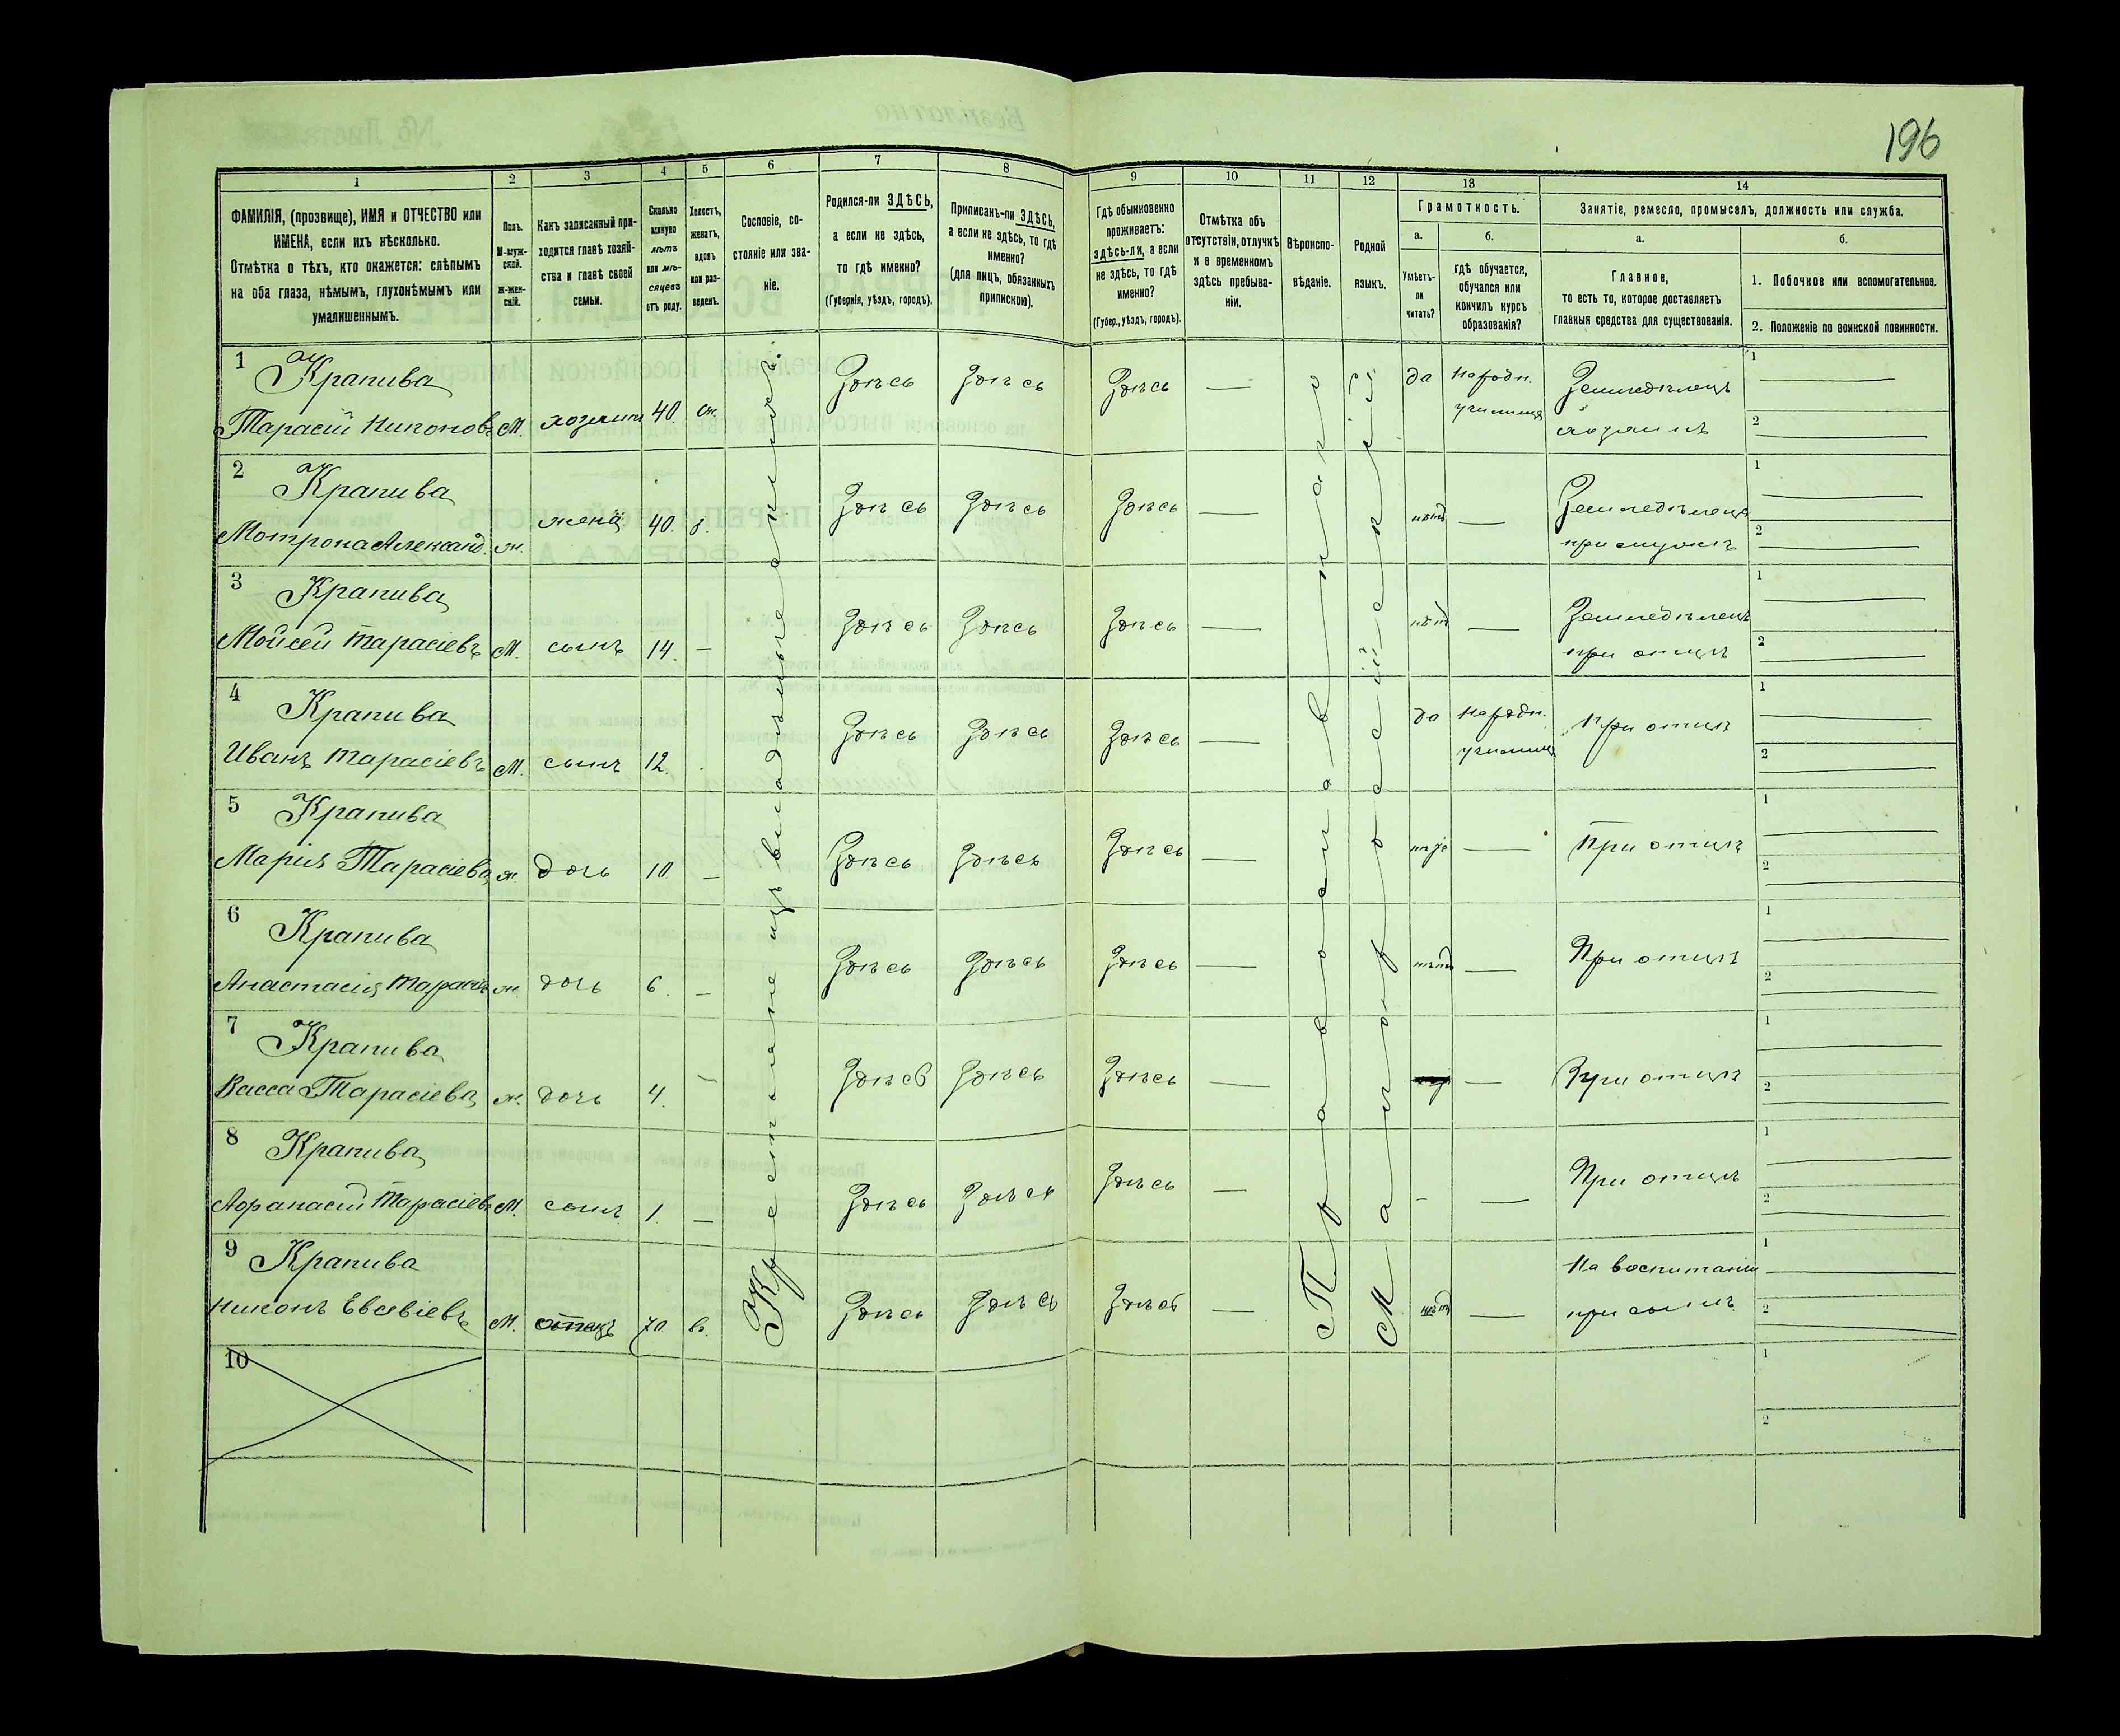 196
1
2
3
4
5
6
7
8
9
10
11
12
13
14
ФАМИЛІЯ, (прозвище), ИМЯ и ОТЧЕСТВО или
ИМЕНА, если ихъ нѣсколько.
Отмѣтка о тѣхъ, кто окажется: слѣпымъ
на оба глаза, нѣмымъ, глухонѣмымъ или
умалишеннымъ.
Полъ.
М-муж-
ской.
Ж-жен-
скій.
Какъ записанный при-
ходится главѣ хозяй-
ства и главѣ своей
семьи.
Сколько
минуло
лѣтъ
или мѣ-
сяцевъ
отъ роду.
Холостъ,
женатъ,
вдовъ
или раз-
веденъ.
Сословіе, со-
стояніе или зва-
ніе.
Родился-ли ЗДѢСЬ,
а если не здѣсь,
то гдѣ именно?
(Губернія, уѣздъ, городъ).
Приписанъ-ли ЗДѢСЬ,
а если не здѣсь, то гдѣ
именно?
(для лицъ, обязанныхъ
припискою).
Гдѣ обыкновенно
проживаетъ:
здѣсь-ли, а если
не здѣсь, то гдѣ
именно?
(Губер., уѣздъ, городъ).
Отмѣтка объ
отсутствіи, отлучкѣ
и о временномъ
здѣсь пребыва-
ніи.
Вѣроиспо-
вѣданіе.
Родной
языкъ.
Грамотность.
а.
Умѣетъ-
ли
читать?
б.
гдѣ обучается,
обучался или
кончилъ курсъ
образованія?
Занятіе, ремесло, промыселъ, должность или служба.
а.
Главное,
то есть то, которое доставляетъ
главныя средства для существованія.
б.
1. Побочное или вспомогательное.
2. Положеніе по воинской повинности.
Крестьяне изъ владѣльческихъ
Православнаго
Малороссійскій
1 Крапива
Тарасій Никоновъ М. хозяинъ 40. ж. Здѣсь Здѣсь Здѣсь — да народн. училищѣ Земледѣлецъ хозяинъ 1 — 2 —
2 Крапива
Мотрона Александ. ж. жена 40. з. Здѣсь Здѣсь Здѣсь — нѣтъ — Земледѣлецъ при мужѣ 1 — 2 —
3 Крапива
Мойсей Тарасіевъ М. сынъ 14. — Здѣсь Здѣсь Здѣсь — нѣтъ — Земледѣлецъ при отцѣ 1 — 2 —
4 Крапива
Иванъ Тарасіевъ М. сынъ 12. Здѣсь Здѣсь Здѣсь — да народн. училищѣ При отцѣ 1 — 2 —
5 Крапива
Марія Тарасіева ж. дочь 10. — Здѣсь Здѣсь Здѣсь — нѣтъ — При отцѣ 1 — 2 —
6 Крапива
Анастасія Тарасіев ж. дочь 6. — Здѣсь Здѣсь Здѣсь — нѣтъ — При отцѣ 1 — 2 —
7 Крапива
Васса Тарасіева ж. дочь 4. — Здѣсь Здѣсь Здѣсь — — При отцѣ 1 — 2 —
8 Крапива
Афанасій Тарасіевъ М. сынъ 1. — Здѣсь Здѣсь Здѣсь — - — При отцѣ 1 — 2 —
9 Крапива
Никонъ Евсевіевъ М. отецъ 70. в. Здѣсь Здѣсь Здѣсь — нѣтъ — На воспитаніи при сынѣ 1 — 2 —
10 1 2